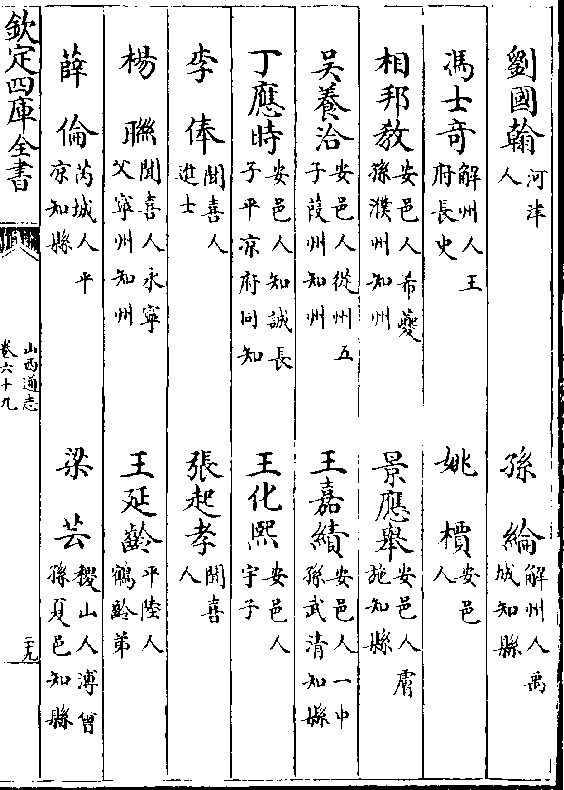 劉國翰 河津人 孫綸 解州人禹城知縣
馮士竒 解州人王府長史 姚檟 安邑人
相邦教 安邑人希夔孫濮州知州 景應舉 安邑人膚施知縣
吳養洽 安邑人從州五子葭州知州 王嘉績 安邑人一中孫武清知縣
丁應時 安邑人知誠長子平凉府同知 王化熙 安邑人宇子
李俸 聞喜人進士 張起孝 聞喜人
楊聮 聞喜人永寧父寧州知州 王延齡 平陸人鶴齡弟
薛倫 芮城人平凉知縣 梁芸 稷山人溥曾孫夏邑知縣
欽定四庫全書 山西通志卷六十九 二十九